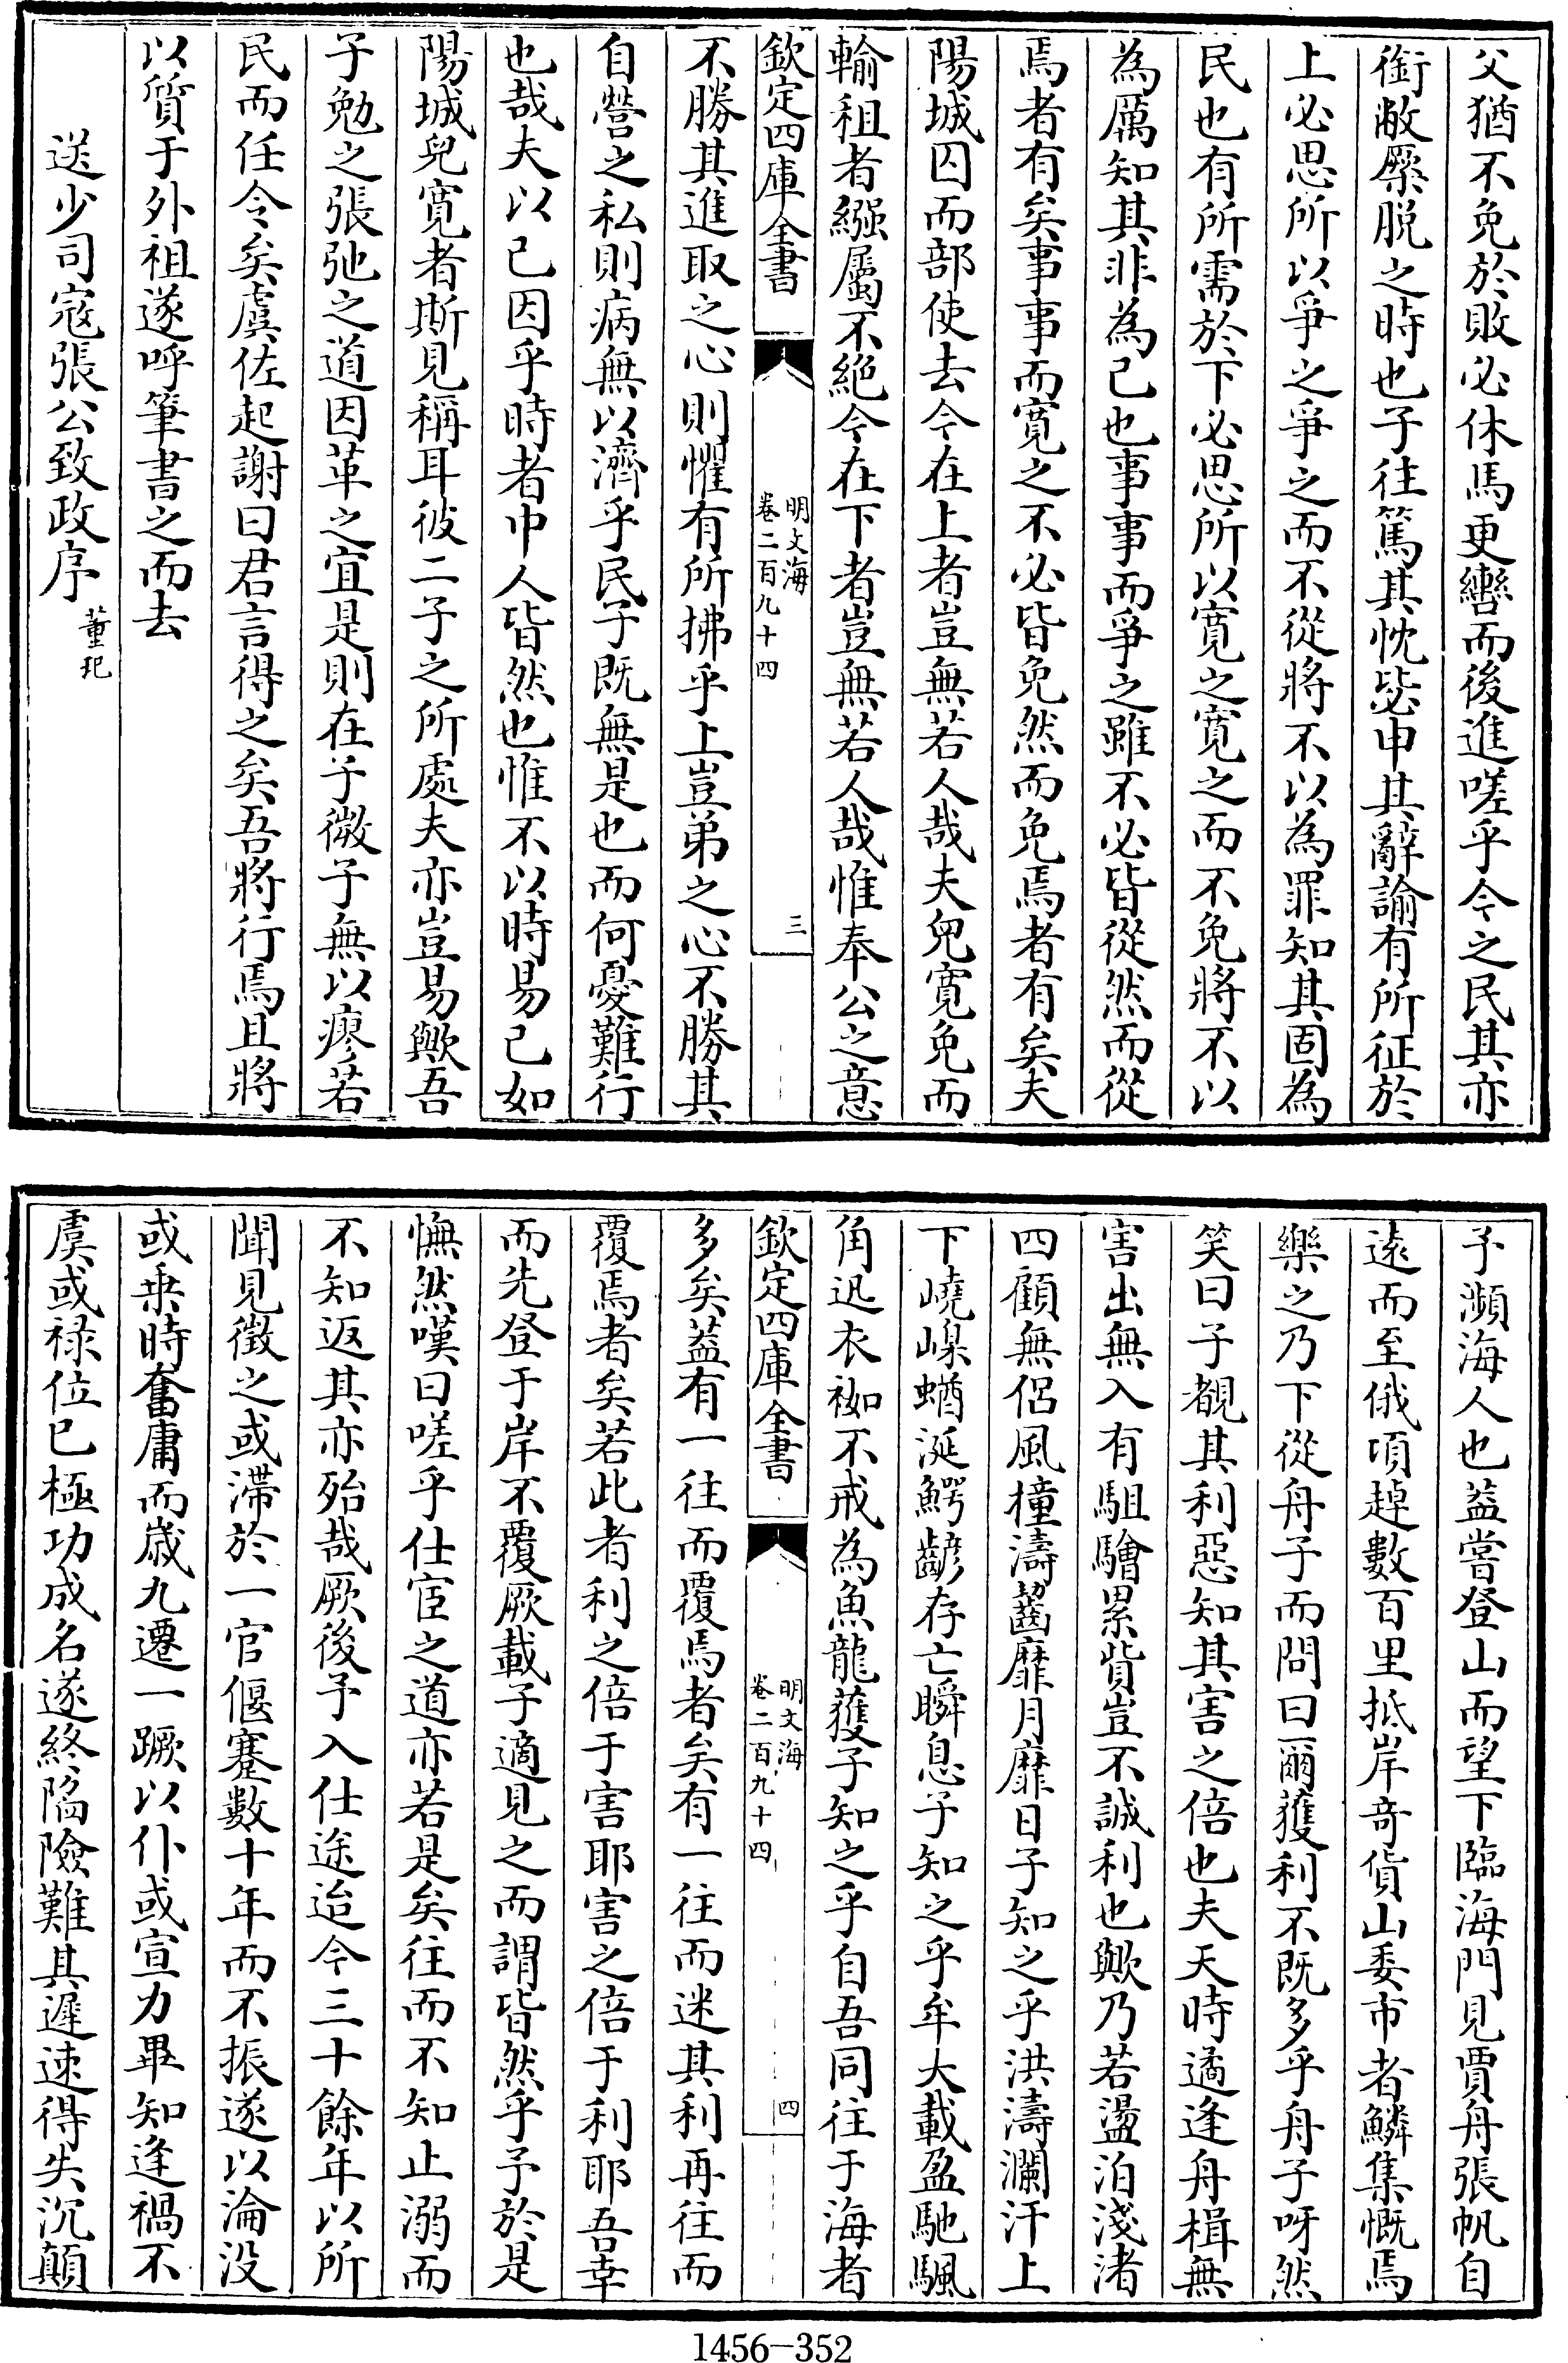 父猶不免於敗必休馬更轡而後進嗟乎今之民其亦
銜敝橜脱之時也子往篤其忱毖申其辭諭有所征於
上必思所以爭之爭之而不從將不以為罪知其固為
民也有所需於下必思所以寛之寛之而不免將不以
為厲知其非為己也事事而爭之雖不必皆從然而從
焉者有矣事事而寛之不必皆免然而免焉者有矣夫
陽城囚而部使去今在上者豈無若人哉夫兒寛免而
輸租者繦屬不絶今在下者豈無若人哉惟奉公之意
欽定四庫全書
明文海
卷二百九十四
三
不勝其進取之心則懼有所拂乎上豈弟之心不勝其
自營之私則病無以濟乎民子既無是也而何憂難行
也哉夫以己因乎時者中人皆然也惟不以時易己如
陽城兒寛者斯見稱耳彼二子之所處夫亦豈易歟吾
子勉之張弛之道因革之宜是則在子微子無以瘳若
民而任令矣虞佐起謝曰君言得之矣吾將行焉且將
以質于外祖遂呼筆書之而去
送少司寇張公致政序
董玘
予瀕海人也葢嘗登山而望下臨海門見賈舟張帆自
逺而至俄頃趠數百里抵岸奇貨山委市者鱗集慨焉
樂之乃下從舟子而問曰爾獲利不既多乎舟子呀然
笑曰子覩其利惡知其害之倍也夫天時遹逢舟楫無
害出無入有駔驓累貲豈不誠利也歟乃若盪泊淺渚
四顧無侶風撞濤齧靡月靡日子知之乎洪濤瀾汗上
下嶢嵲蝤涎鰐齴存亡瞬息子知之乎牟大載盈馳颿
角迅衣袽不戒為魚龍獲子知之乎自吾同往于海者
欽定四庫全書
明文海
卷二百九十四
四
多矣葢有一往而覆焉者矣有一往而迷其利再往而
覆焉者矣若此者利之倍于害耶害之倍于利耶吾幸
而先登于岸不覆厥載子適見之而謂皆然乎予於是
憮然嘆曰嗟乎仕宦之道亦若是矣往而不知止溺而
不知返其亦殆哉厥後予入仕途迨今三十餘年以所
聞見徵之或滯於一官偃蹇數十年而不振遂以淪没
或乗時奮庸而嵗九遷一蹶以仆或宣力畢知逢禍不
虞或禄位已極功成名遂終陷險難其遲速得失沉顛
1456-352